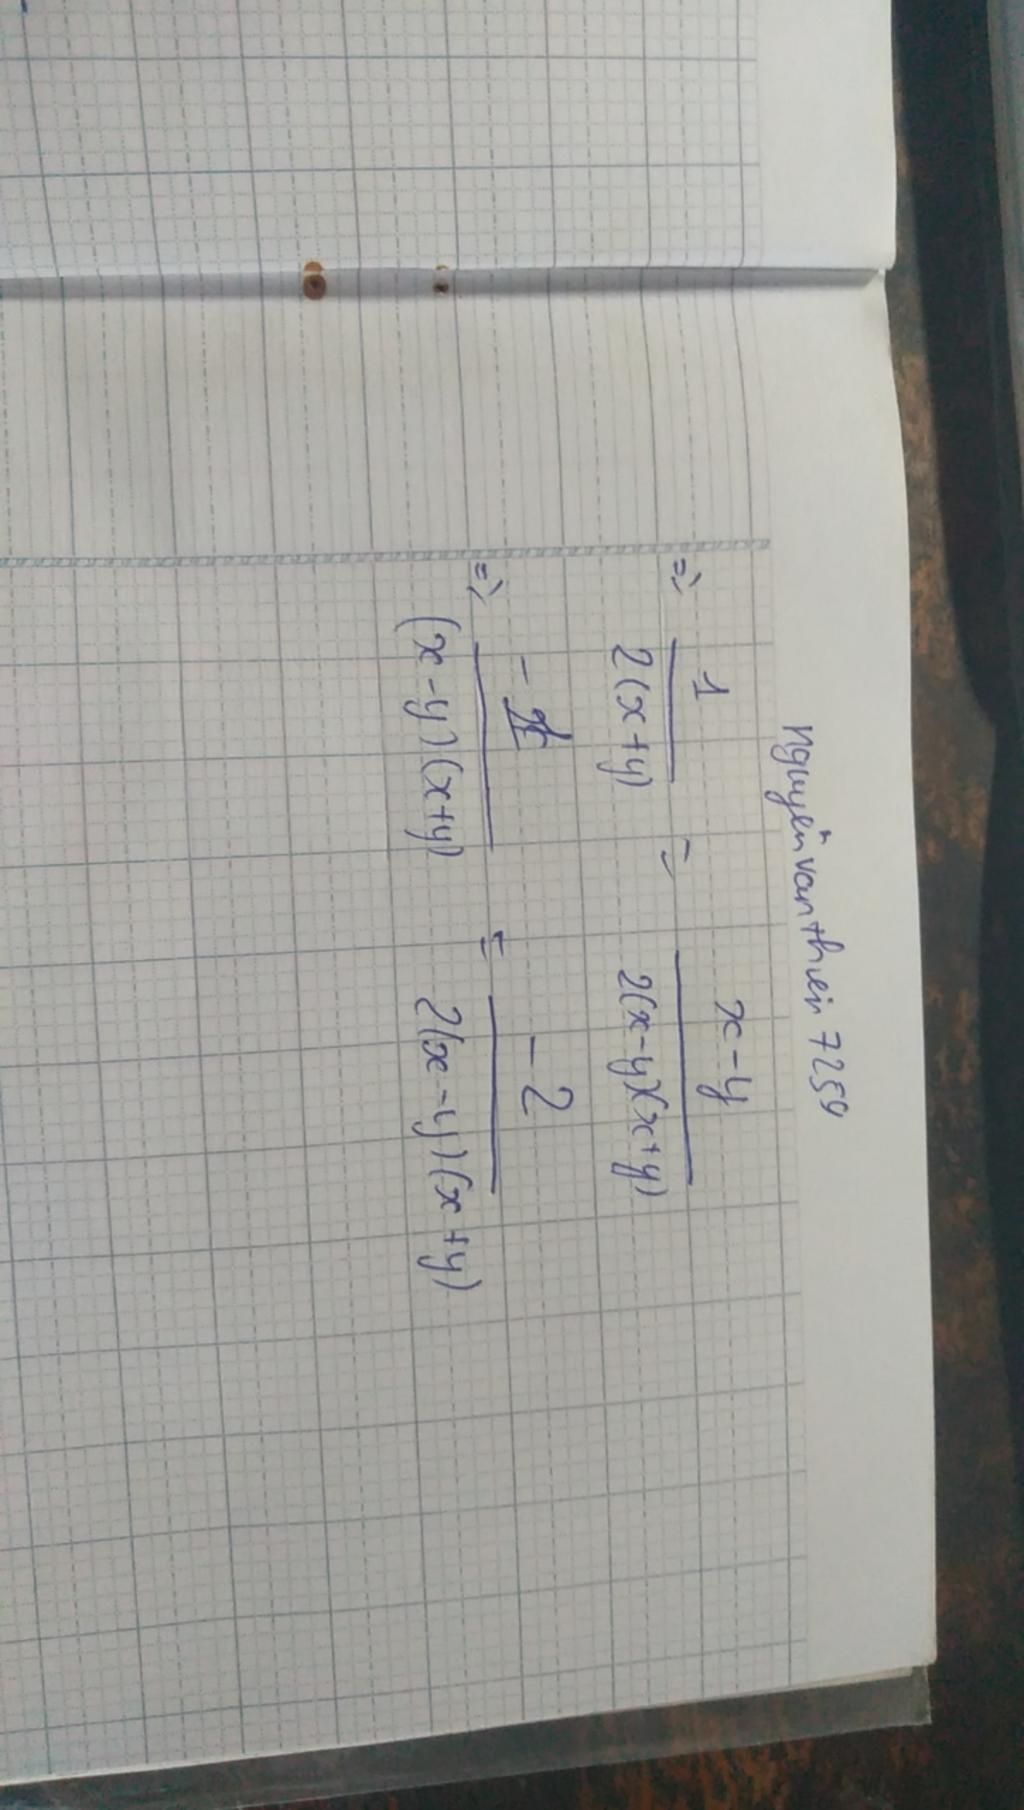 Nguyễn van thuên 7259
=> 1/2(x+y) = x-y/2(x-y)(x+y)
=> -1/(x-y)(x+y) = -2/2(x-y)(x+y)